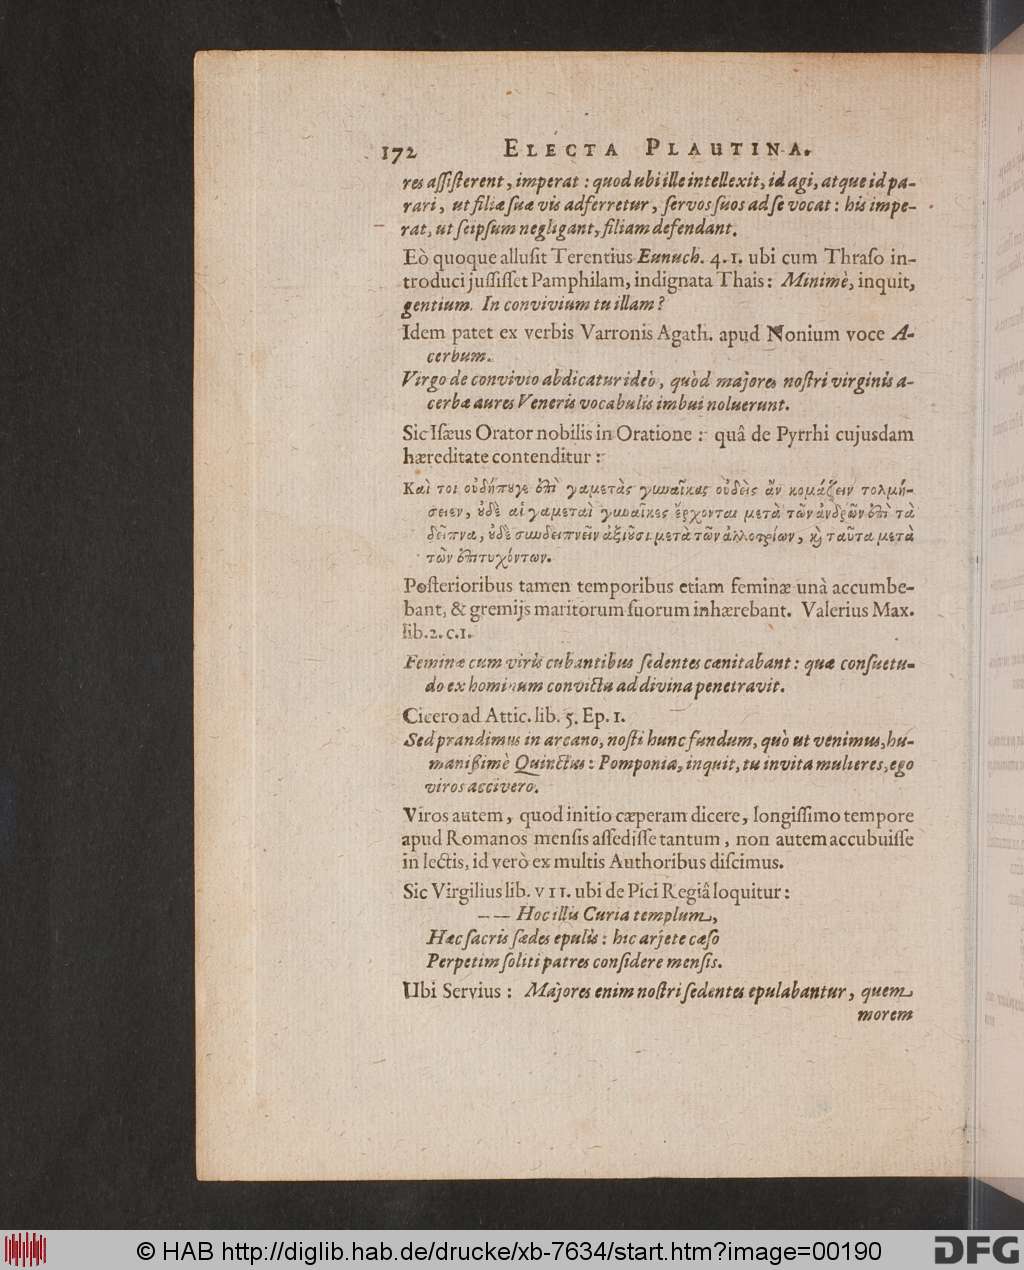 172 ELECTA PLAUTINA.
res assisterent, imperat : quod ubi ille intellexit, id agi, atque id pa-
rari, ut filiæ suæ vis adferretur, servos suos ad se vocat : his impe-
rat, ut seipsum negligant, filiam defendant.
Eò quoque allusit Terentius Eunuch. 4. 1. ubi cum Thraso in-
troduci jussisset Pamphilam, indignata Thais : Minimè, inquit,
gentium. In convivium tu illam ?
Idem patet ex verbis Varronis Agath. apud Nonium voce A-
cerbum.
Virgo de convivio abdicatur ideò, quòd majores nostri virginis a-
cerbæ aures Veneris vocabulis imbui noluerunt.
Sic Isæus Orator nobilis in Oratione : quâ de Pyrrhi cujusdam
hæreditate contenditur :
Καὶ τοι οὐδήπουγε ἐπὶ γαμετὰς γυναῖκας οὐδεὶς ἂν κομάζειν τολμή-
σειεν, οὐδὲ αἱ γαμεταὶ γυναῖκες ἔρχονται μετὰ τῶν ἀνδρῶν ἐπὶ τὰ
δεῖπνα, οὐδὲ συνδειπνεῖν ἀξιοῦσι μετὰ τῶν ἀλλοτρίων, καὶ ταῦτα μετὰ
τῶν ἐπιτυχόντων.
Posterioribus tamen temporibus etiam feminæ unà accumbe-
bant, & gremijs maritorum suorum inhærebant. Valerius Max.
lib. 2. c. 1.
Feminæ cum viris cubantibus sedentes cœnitabant : quæ consuetu-
do ex hominum convictu ad divina penetravit.
Cicero ad Attic. lib. 5. Ep. 1.
Sed prandimus in arcano, nosti hunc fundum, quò ut venimus, hu-
manißimè Quinctus : Pomponia, inquit, tu invita mulieres, ego
viros accivero.
Viros autem, quod initio cæperam dicere, longissimo tempore
apud Romanos mensis assedisse tantum, non autem accubuisse
in lectis, id verò ex multis Authoribus discimus.
Sic Virgilius lib. VII. ubi de Pici Regiâ loquitur :
—— Hoc illis Curia templum,
Hæc sacris sædes epulis : hic arjete cæso
Perpetim soliti patres considere mensis.
Ubi Servius : Majores enim nostri sedentes epulabantur, quem
morem
© HAB http://diglib.hab.de/drucke/xb-7634/start.htm?image=00190
DFG